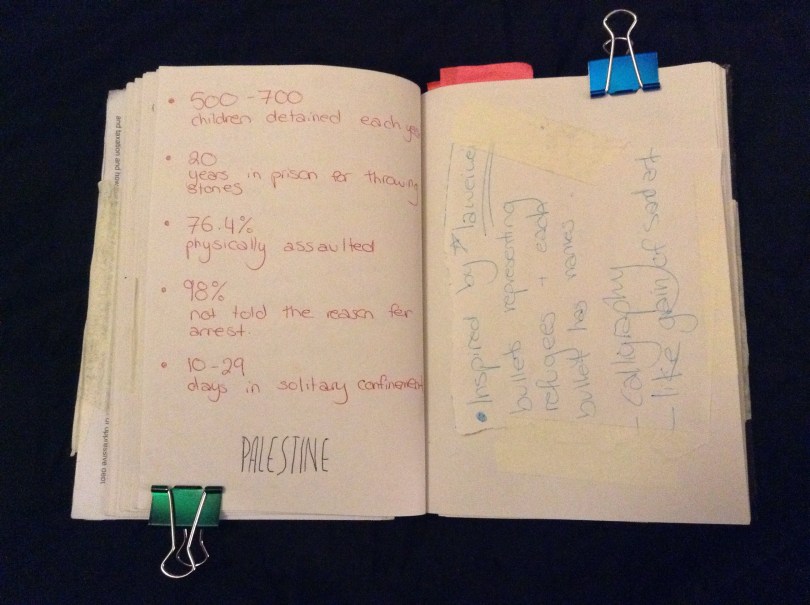 500-700
children detained each
20
years in prison for throwing
stones
76.4%
physically assaulted
98%
not told the reason for
arrest.
10-29
days in solitary confinement
PALESTINE
Inspired by
bullets representing
refugees + each
bullet has names.
- calligraphy
- like grain of
and taxation and